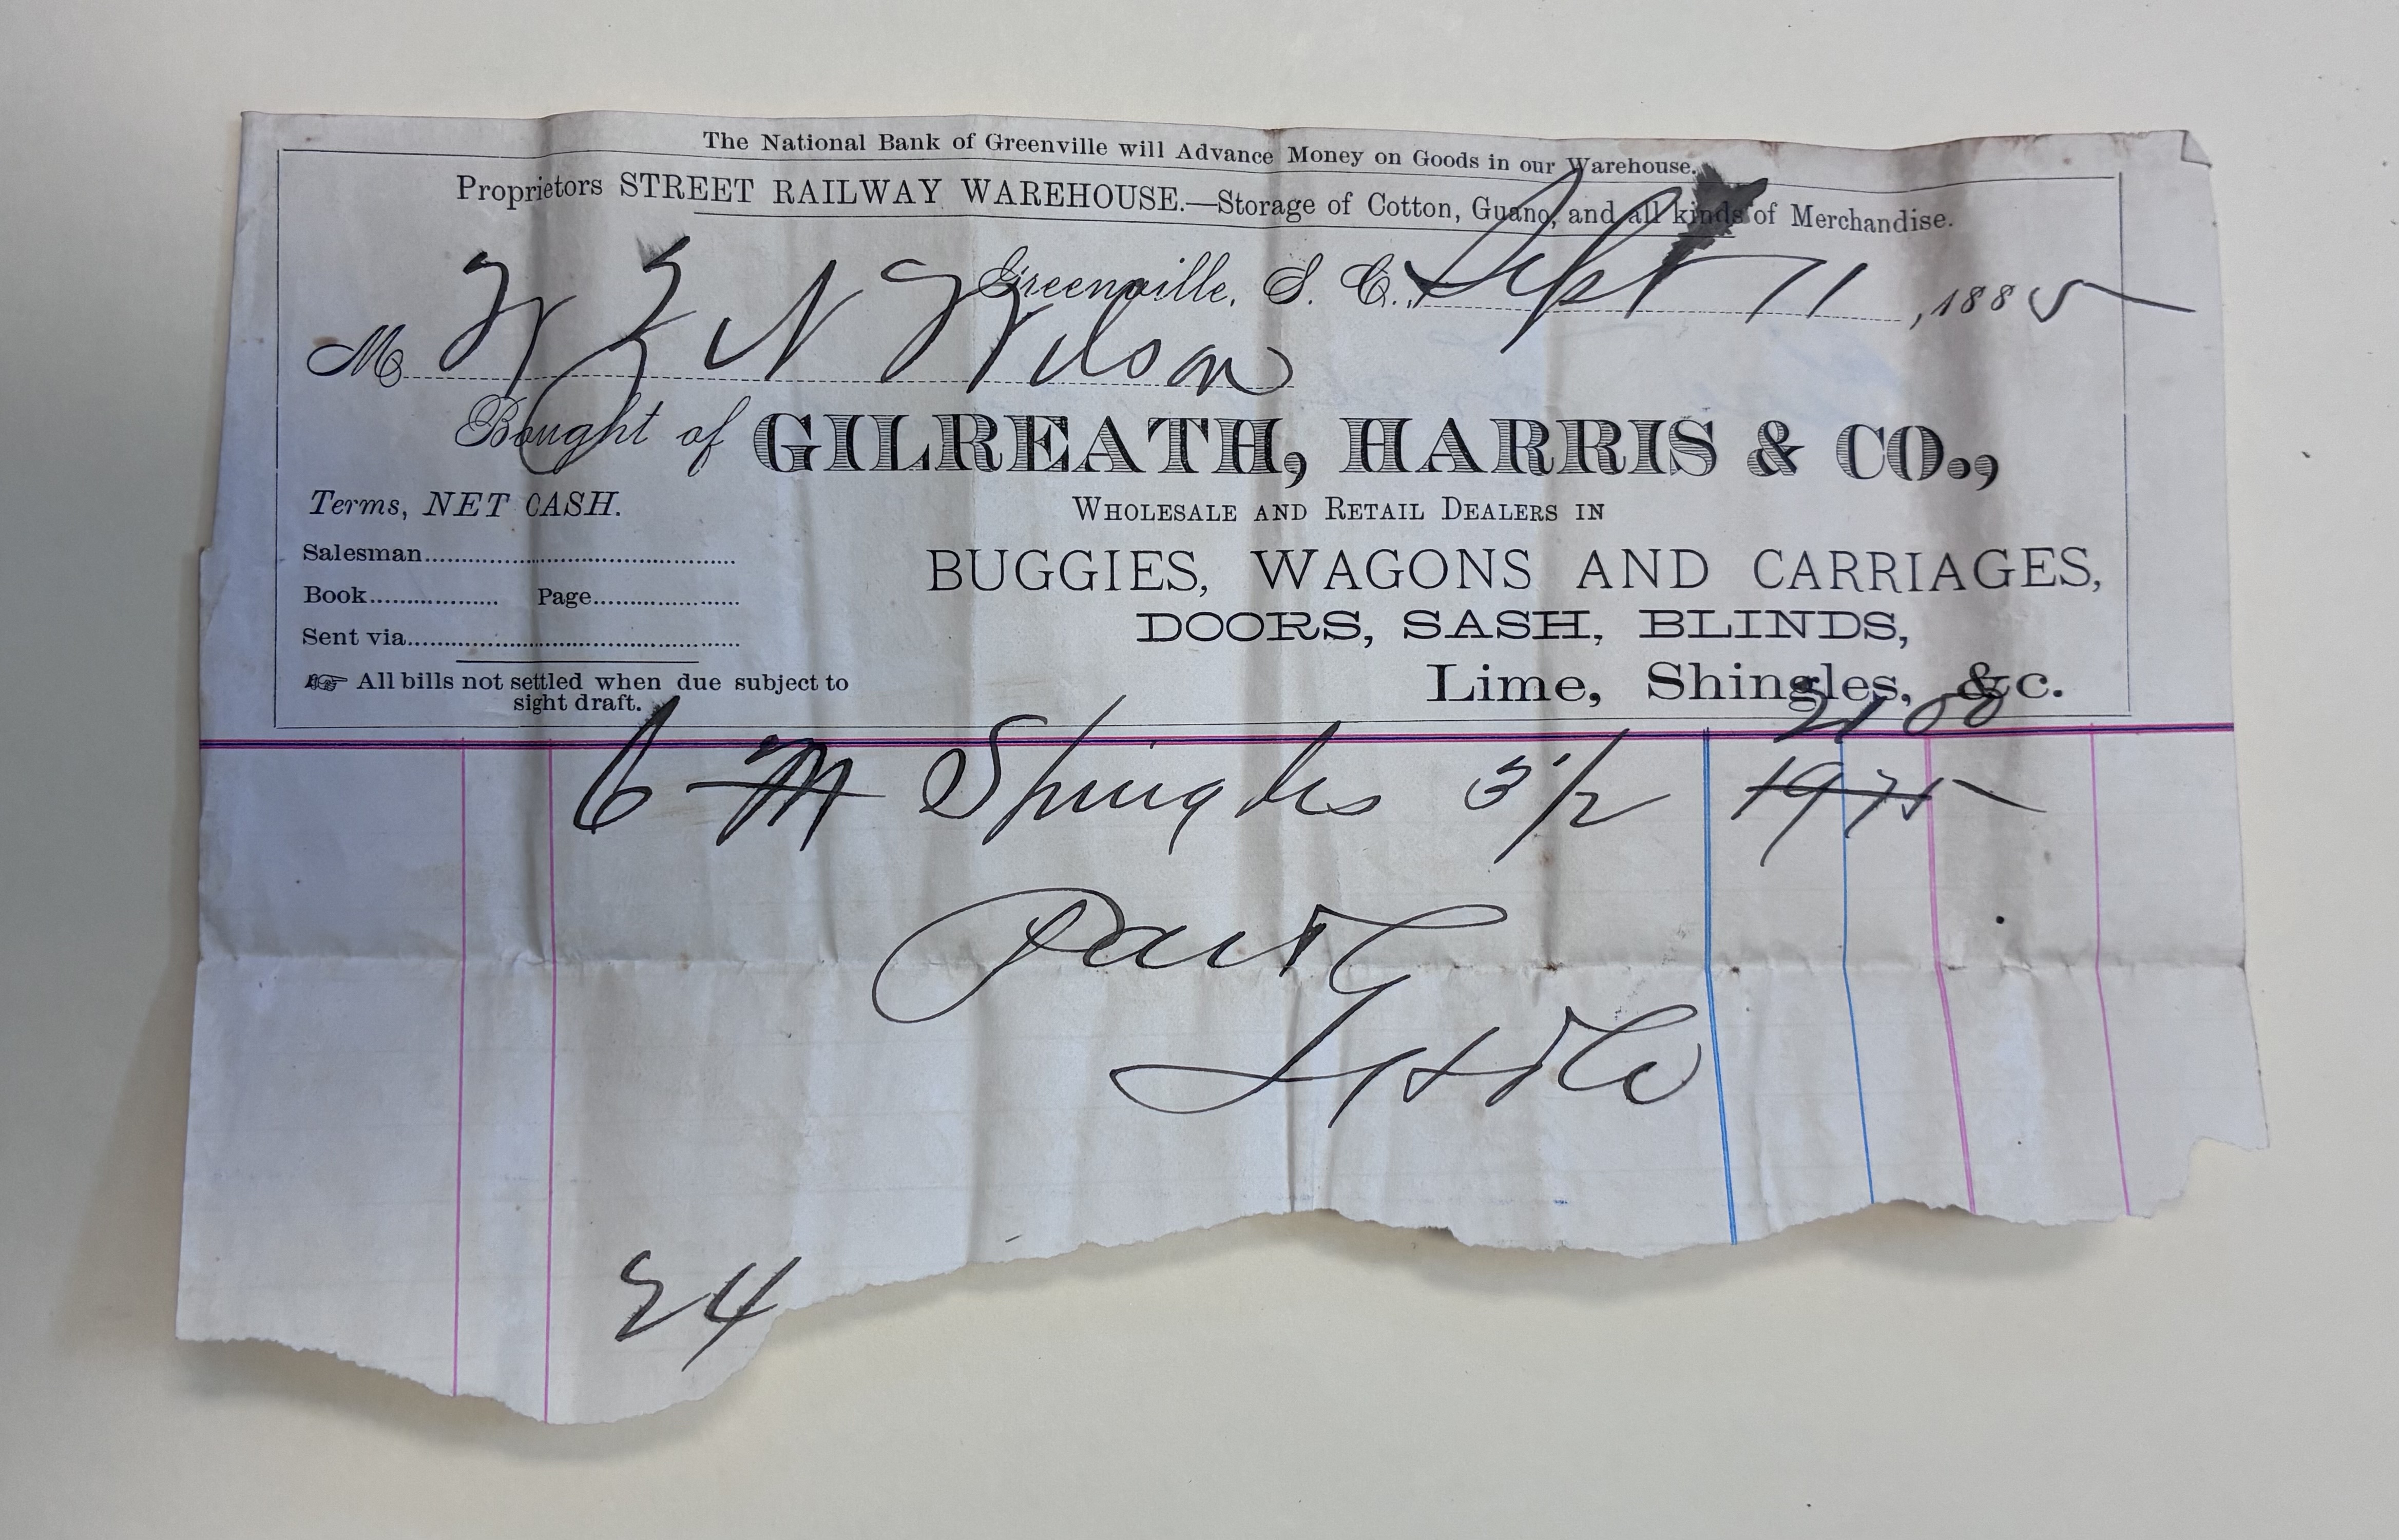 The National Bank of Greenville will Advance Money on Goods in our Warehouse.
Proprietors STREET RAILWAY WAREHOUSE.—Storage of Cotton, Guano, and all kinds of Merchandise.
Greenville, S. C., Sept 11, 1885
M W Z N Wilson
Bought of GILREATH, HARRIS & CO.,
Terms, NET CASH.
WHOLESALE AND RETAIL DEALERS IN
Salesman
BUGGIES, WAGONS AND CARRIAGES,
Book Page
DOORS, SASH, BLINDS,
Sent via
☞ All bills not settled when due subject to
sight draft.
Lime, Shingles, &c.
21 00
6 M Shingles 3 1/2 19 75
Paid
G H & Co
24